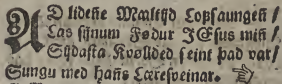 AD lideñe Mæltijd Lofsaungeñ /
Las sijnum Fødur JEsus miñ /
Sijdasta Kvolldед seint þad var /
Sungu med hañs Læresveinar.